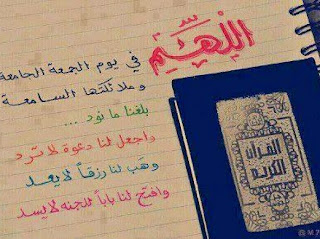 اللهم
في يوم الجمعة الجامعة
وملائكتها السامعة
بلغنا ما نود ...
واجعل لنا دعوة لا ترد
وهب لنا رزقاً لا يعد
وافتح لنا باباً للجنه لا يسد
القرآن
الكريم